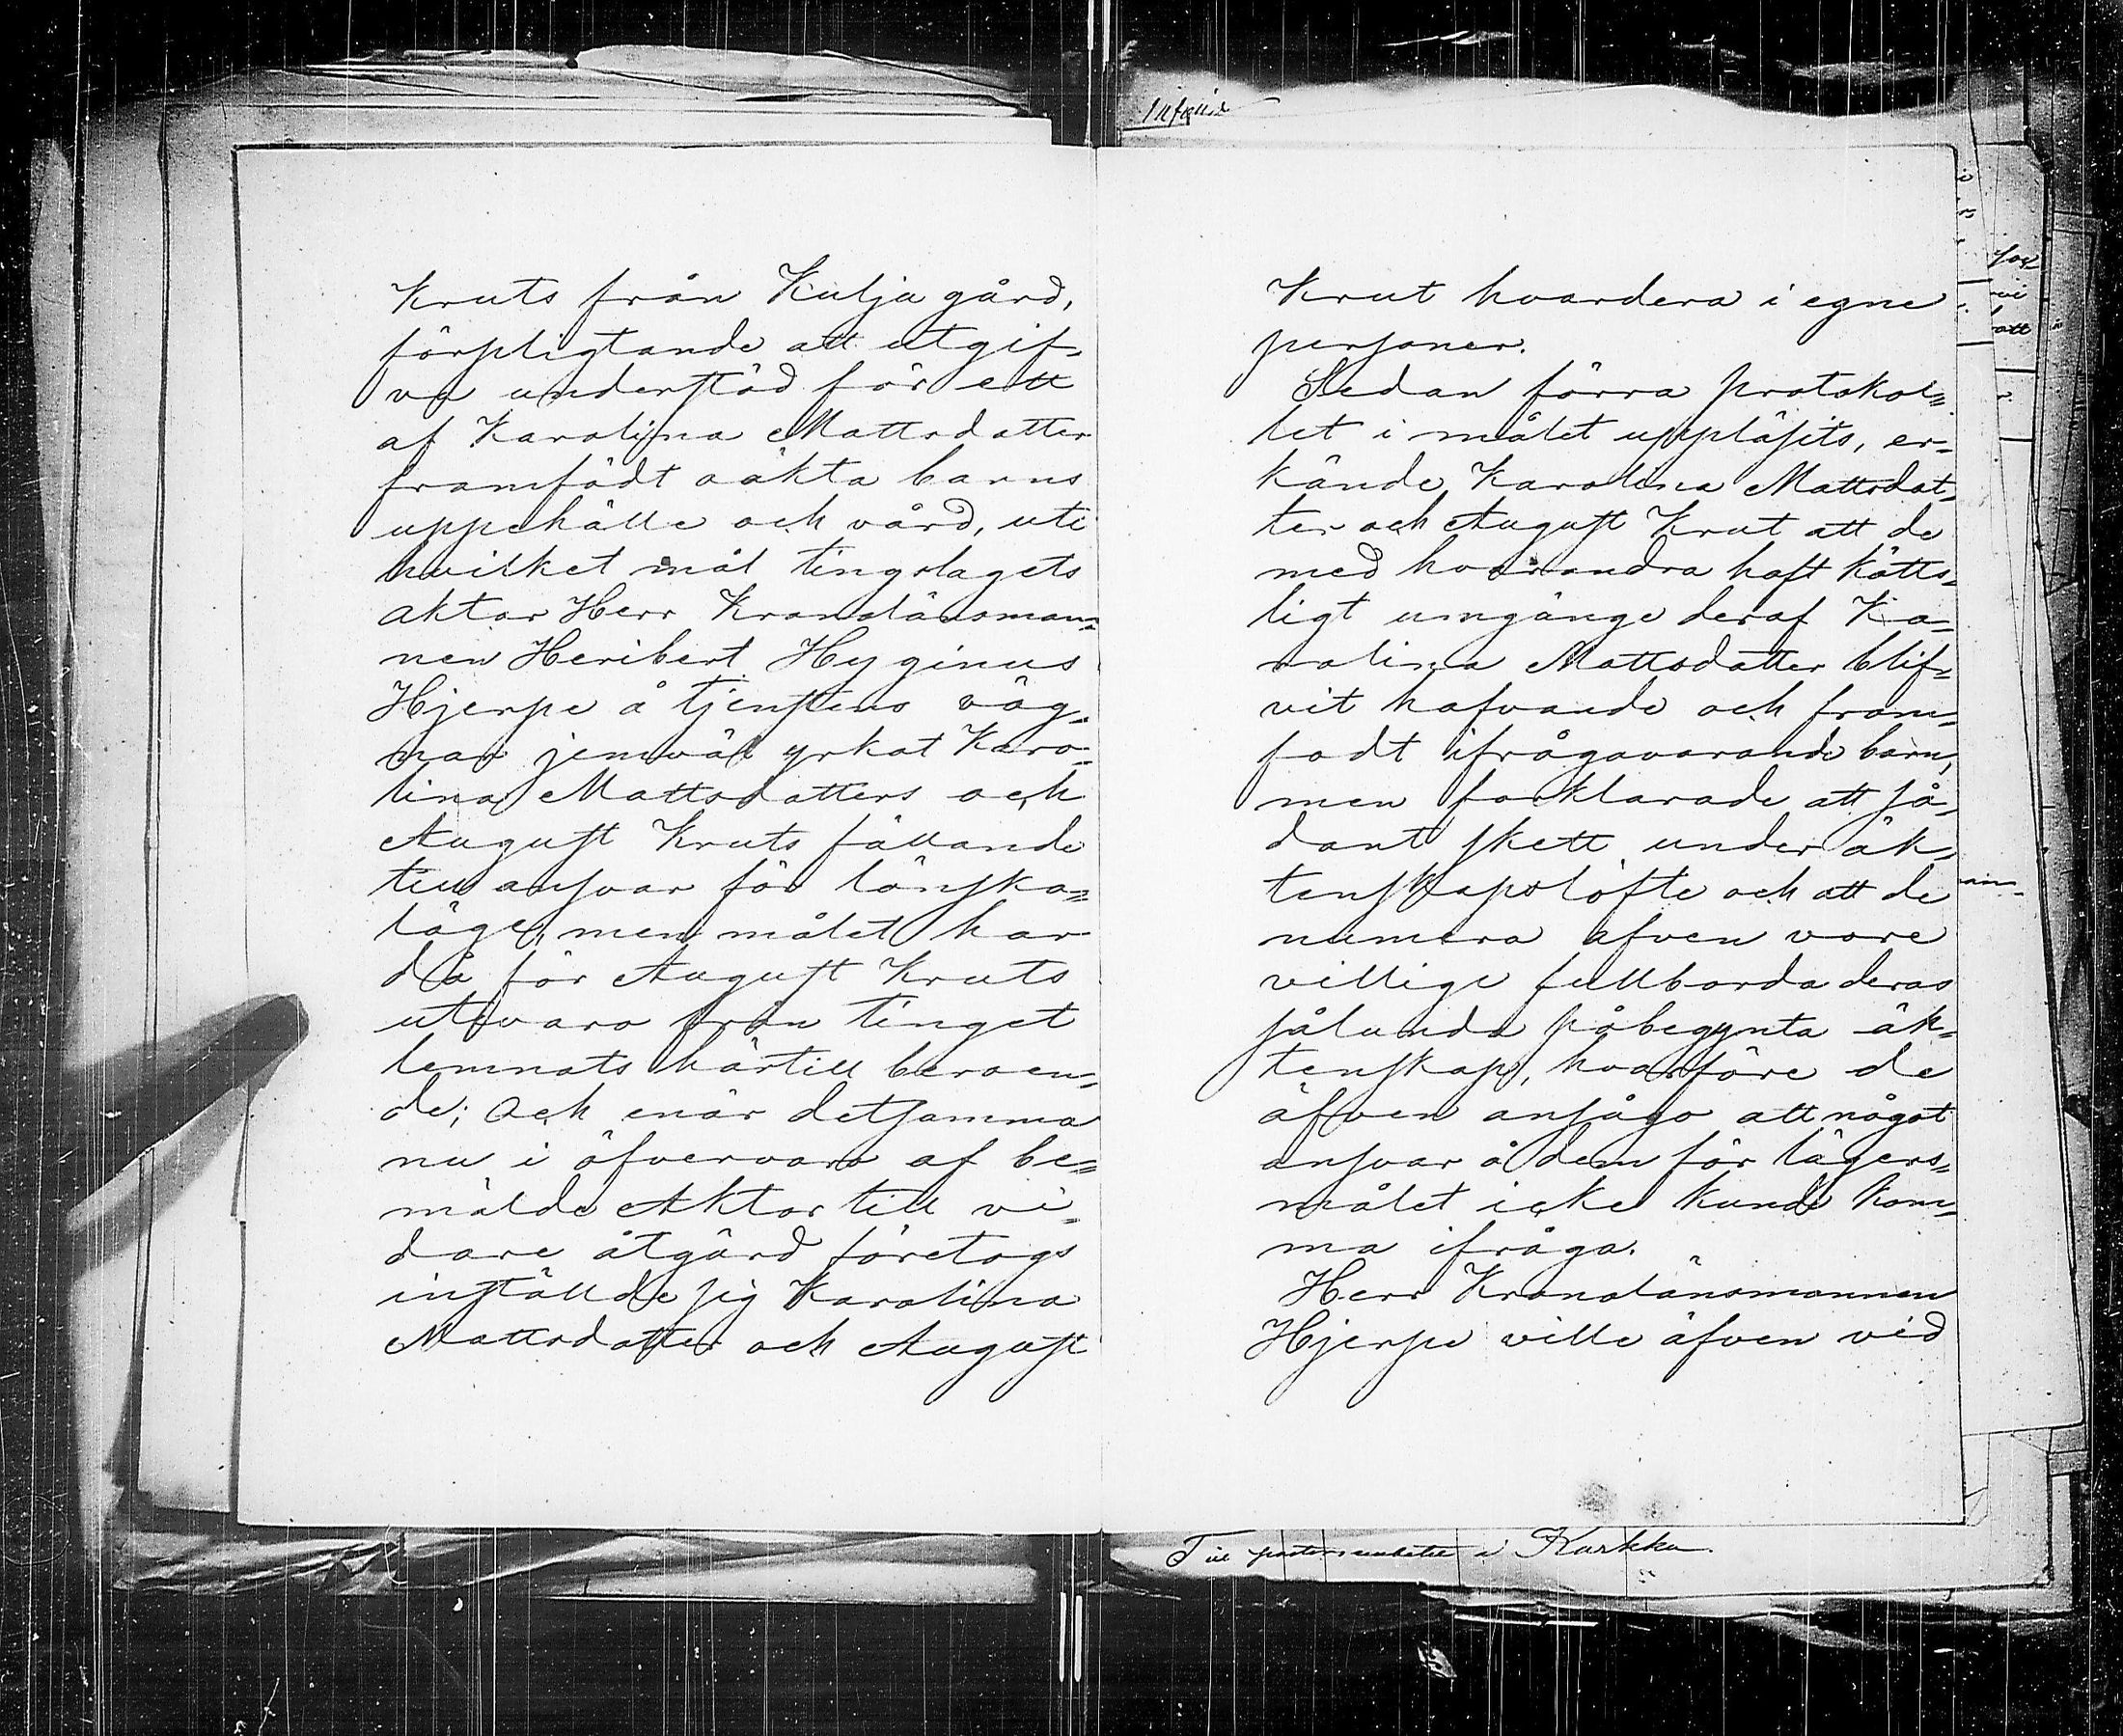 Kruts från Kulja gård,
förpligtande att utgif-
va understöd för ett
af Karolina Mattsdotter
framfödt oäkta barns
uppehälle och vård, uti
hvilket mål tingslagets
aktor Herr Kronolänsman=
nen Heribert Hyginus
Hjerpe å tjenstens väg-
nar jemväl yrkat Karo-
lina Mattsdotters och
August Kruts fällande
till ansvar för lönska=
läge, men målet har
då för August Kruts
utevaro från tinget
lemnats härtill beroen-
de; Och enär detsamma
nu i öfvervaro af be=
mälde Aktor till vi-
dare åtgärd företogs
inställde sig Karolina
Mattsdotter och August
Krut hvardera i egne
personer.
Sedan förra protokol=
let i målet uppläsits, er-
kände Karolina Mattsdot-
ter och August Krut att de
med hvarandra haft kötts-
ligt umgänge deraf Ka-
rolina Mattsdotter blif-
vit hafvande och fram-
fodt ifrågavarande barn,
men forklarade att så-
dant skett under äk-
tenskapslöfte och att de
numera äfven vore
villige fullborda deras
sålunda påbegynta äk-
tenskap, hvarföre de
äfven ansågo att något
ansvar å dem för lägers-
målet icke kunde kom-
ma ifråga.
Herr Kronolänsmannen
Hjerpe ville äfven vid
Till pastorsembetet i Karkku.